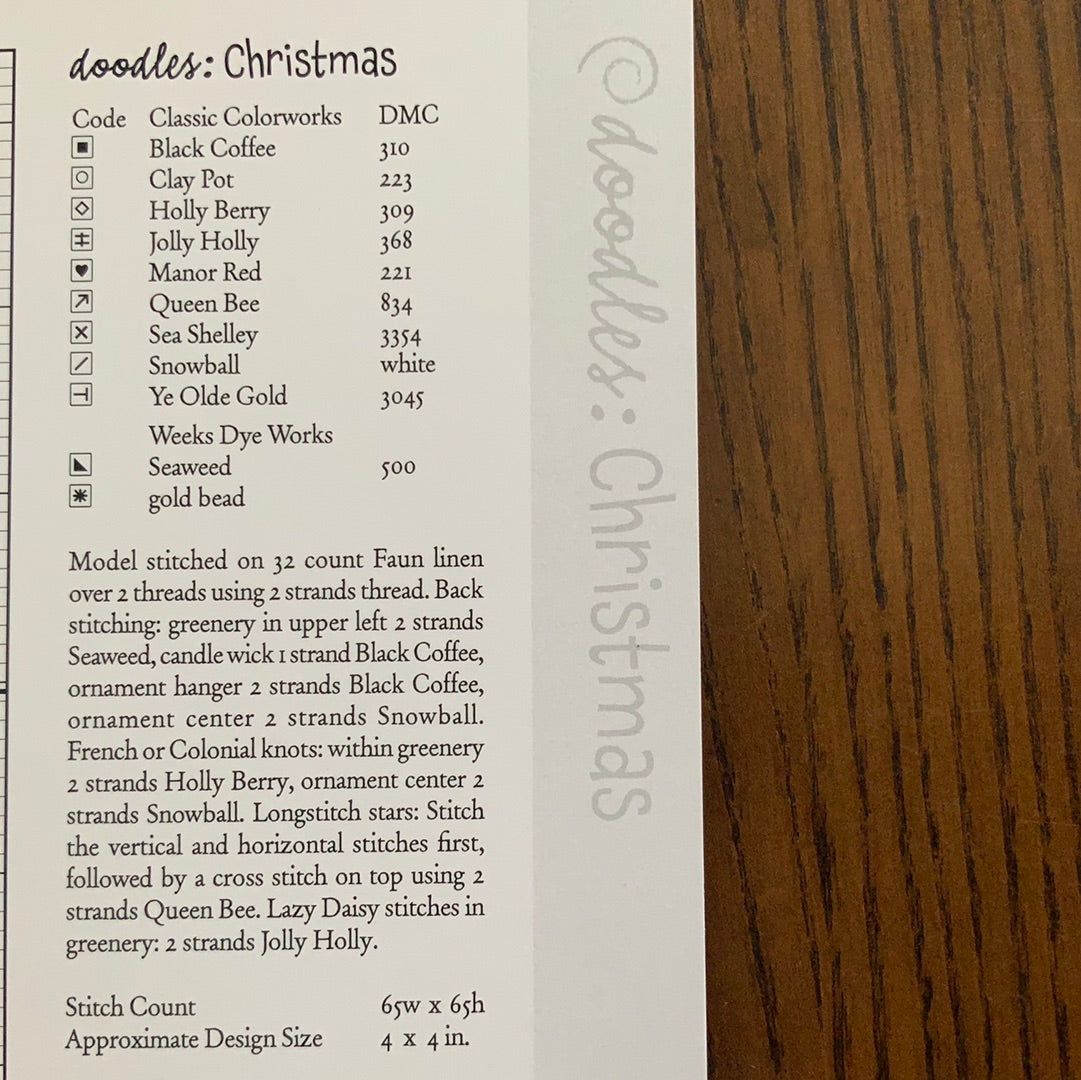 doodles: Christmas
Code Classic Colorworks DMC
Black Coffee 310
Clay Pot 223
Holly Berry 309
Jolly Holly 368
Manor Red 221
Queen Bee 834
Sea Shelley 3354
Snowball white
Ye Olde Gold 3045
Weeks Dye Works
Seaweed 500
gold bead
Model stitched on 32 count Faun linen
over 2 threads using 2 strands thread. Back
stitching: greenery in upper left 2 strands
Seaweed, candle wick 1 strand Black Coffee,
ornament hanger 2 strands Black Coffee,
ornament center 2 strands Snowball.
French or Colonial knots: within greenery
2 strands Holly Berry, ornament center 2
strands Snowball. Longstitch stars: Stitch
the vertical and horizontal stitches first,
followed by a cross stitch on top using 2
strands Queen Bee. Lazy Daisy stitches in
greenery: 2 strands Jolly Holly.
Stitch Count 65w x 65h
Approximate Design Size 4 x 4 in.
doodles: Christmas